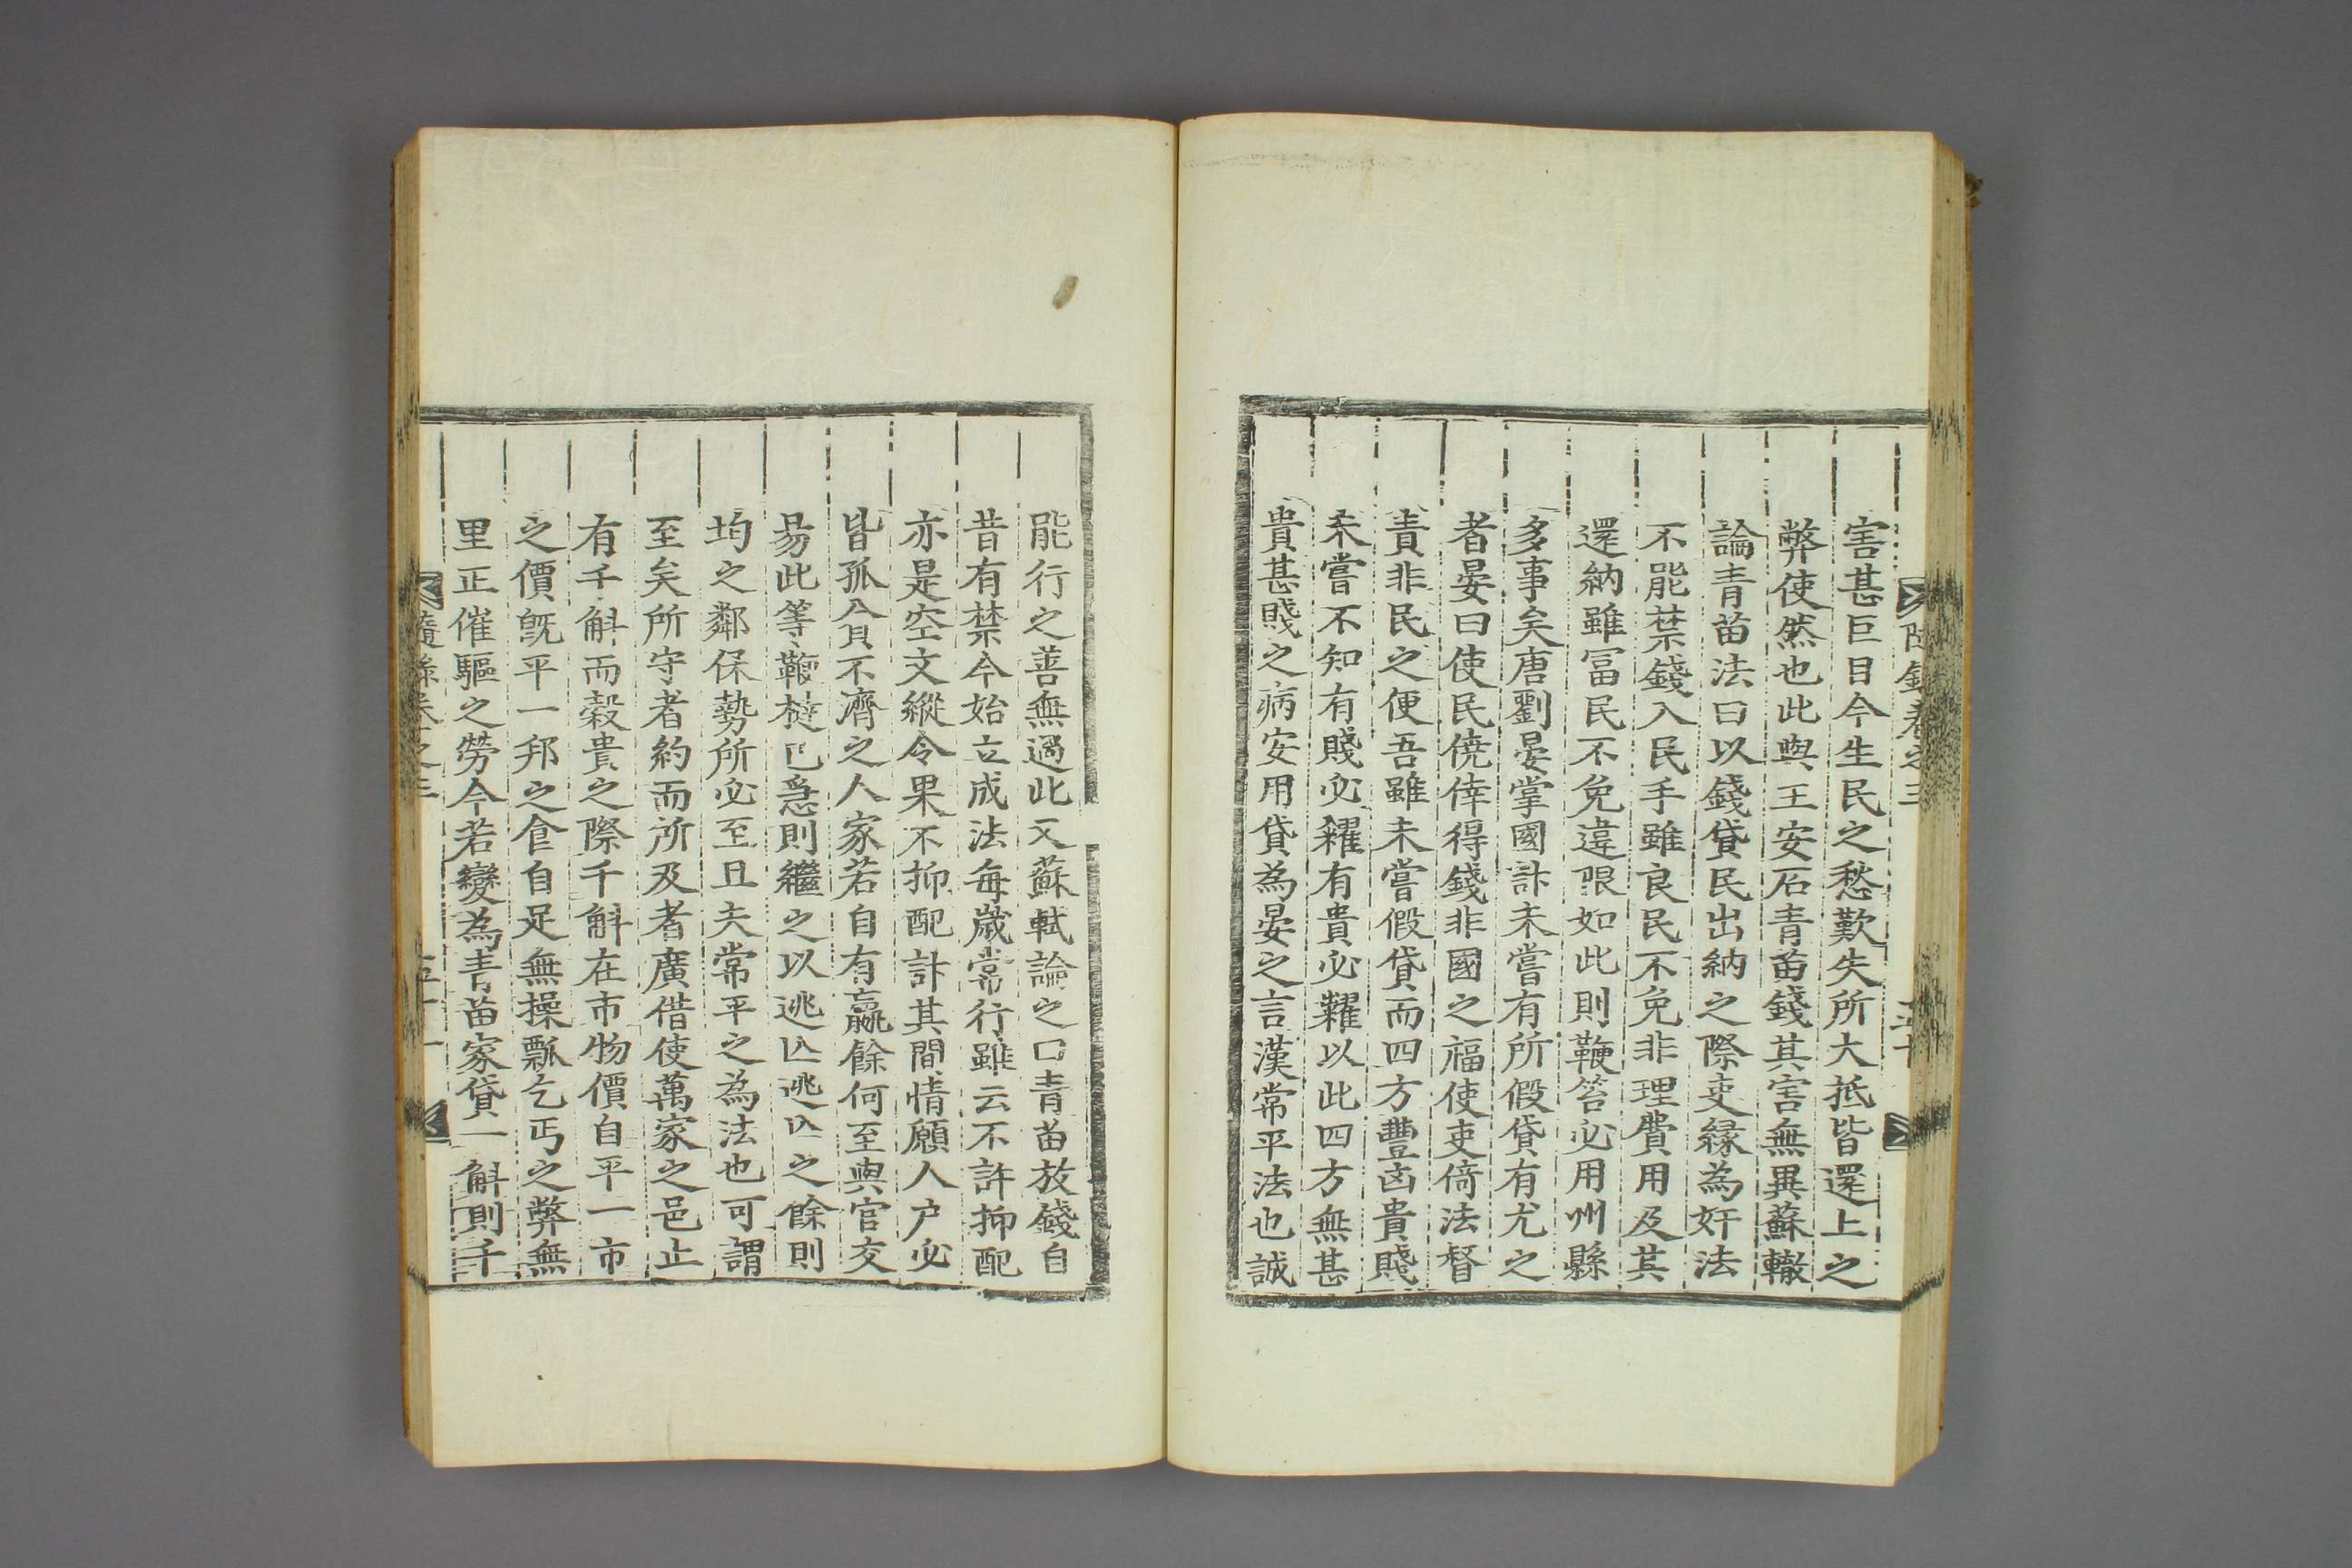 隨錄卷之三
五十
害甚巨目今生民之愁歎失所大抵皆還上之
弊使然也此與王安石青苗錢其害無異蘇轍
論青苗法曰以錢貸民出納之際吏緣為奸法
不能禁錢入民手雖良民不免非理費用及其
還納雖冨民不免違限如此則鞭笞必用州縣
多事矣唐劉晏掌國計未嘗有所假貸有尤之
者晏曰使民僥倖得錢非國之福使吏倚法督
責非民之便吾雖未嘗假貸而四方豊凶貴賤
未嘗不知有賤必糴有貴必糶以此四方無甚
貴甚賤之病安用貸為晏之言漢常平法也誠
能行之善無過此又蘇軾論之曰青苗放錢自
昔有禁今始立成法每歲常行雖云不許抑配
亦是空文縱令果不抑配計其間情願人户必
皆孤貧不濟之人家若自有嬴餘何至與官交
昜此等鞭撻已急則繼之以逃亾逃亾之餘則
均之鄰保勢所必至且夫常平之為法也可謂
至矣所守者約而所及者廣借使萬家之邑止
有千斛而榖貴之際千斛在市物價自平一市
之價旣平一邦之食自足無操瓢乞丐之弊無
里正催驅之勞今若變為青苗家貸一斛則千
隨錄卷之三
五十一